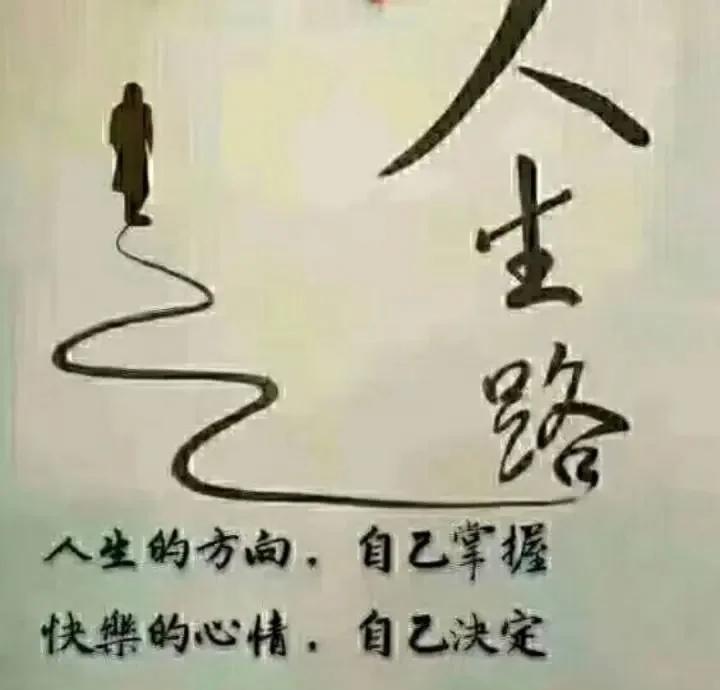 人生路
人生的方向．自己掌握
快樂的心情．自己決定